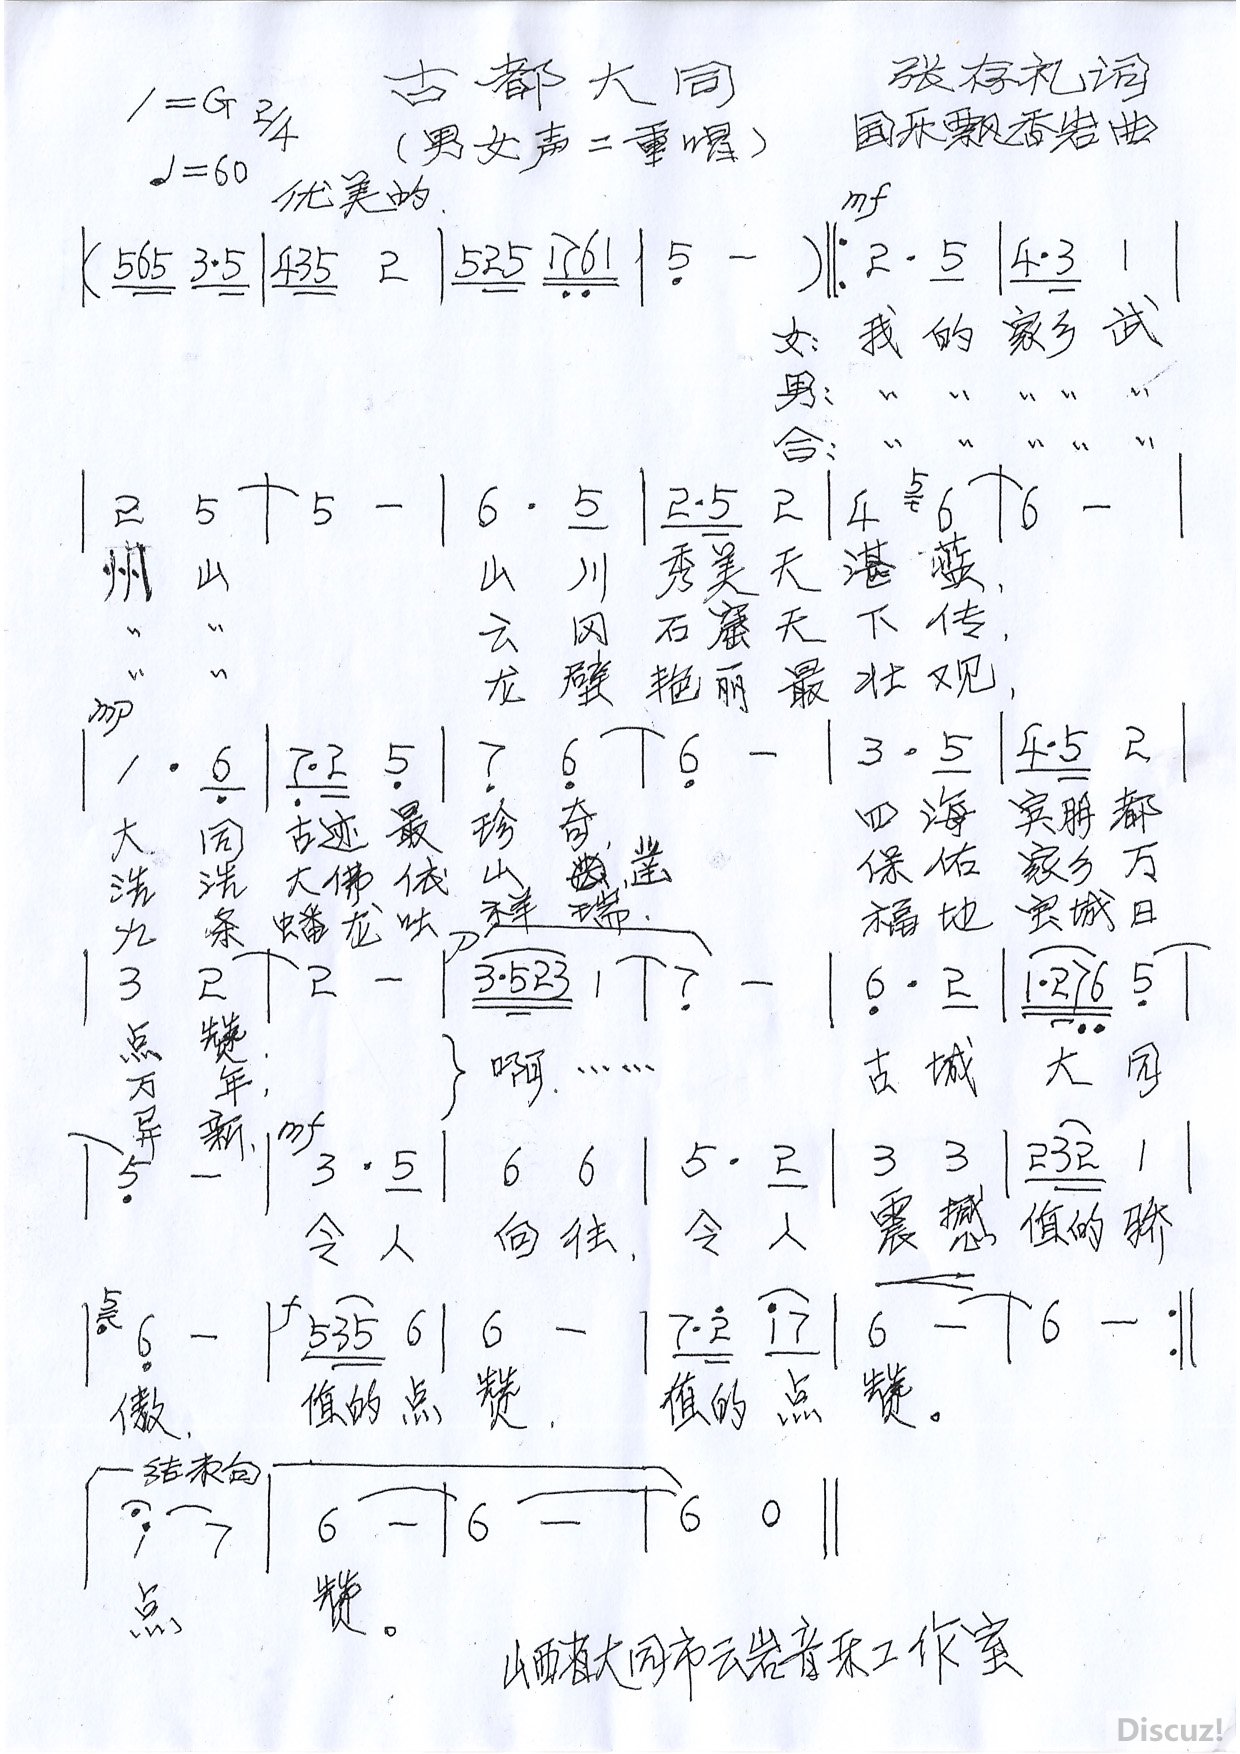 古都大同 张存礼词
1=G 2/4 (男女声二重唱) 国乐飘香岩曲
♩=60 优美的.
mf
(565 3·5|435 2|525 1761|5 - )‖: 2·5|4·3 1|
女: 我的家乡武
男: 〃 〃 〃 〃 〃
合: 〃 〃 〃 〃 〃
|2 5|5 -|6·5|2·5 2|4 5 6|6 -|
州山 山川秀美天湛蓝,
〃 〃 云冈石窟天下传,
〃 〃 龙壁艳丽最壮观,
mp
|1·6|7·2 5|7 6|6 -|3·5|4·5 2|
大同古迹最珍奇, 四海宾朋都
浩浩大佛依山凿, 保佑家乡万
九条蟠龙吐祥瑞. 福地宝城日
p
|3 2|2 -|3·523 1|7 -|6·2|1·276 5|
点赞; } 啊…… 古城大同
万年;
异新.
mf
|5 -|3·5|6 6|5·2|3 3|232 1|
令人向往, 令人震撼值的骄
|5 6 -|f 535 6|6 -|7·2 17|6 -|6 -:‖
傲, 值的点赞, 值的点赞。
结束句
1 7|6 -|6 -|6 0‖
点 赞。
山西省大同市云岩音乐工作室
Discuz!